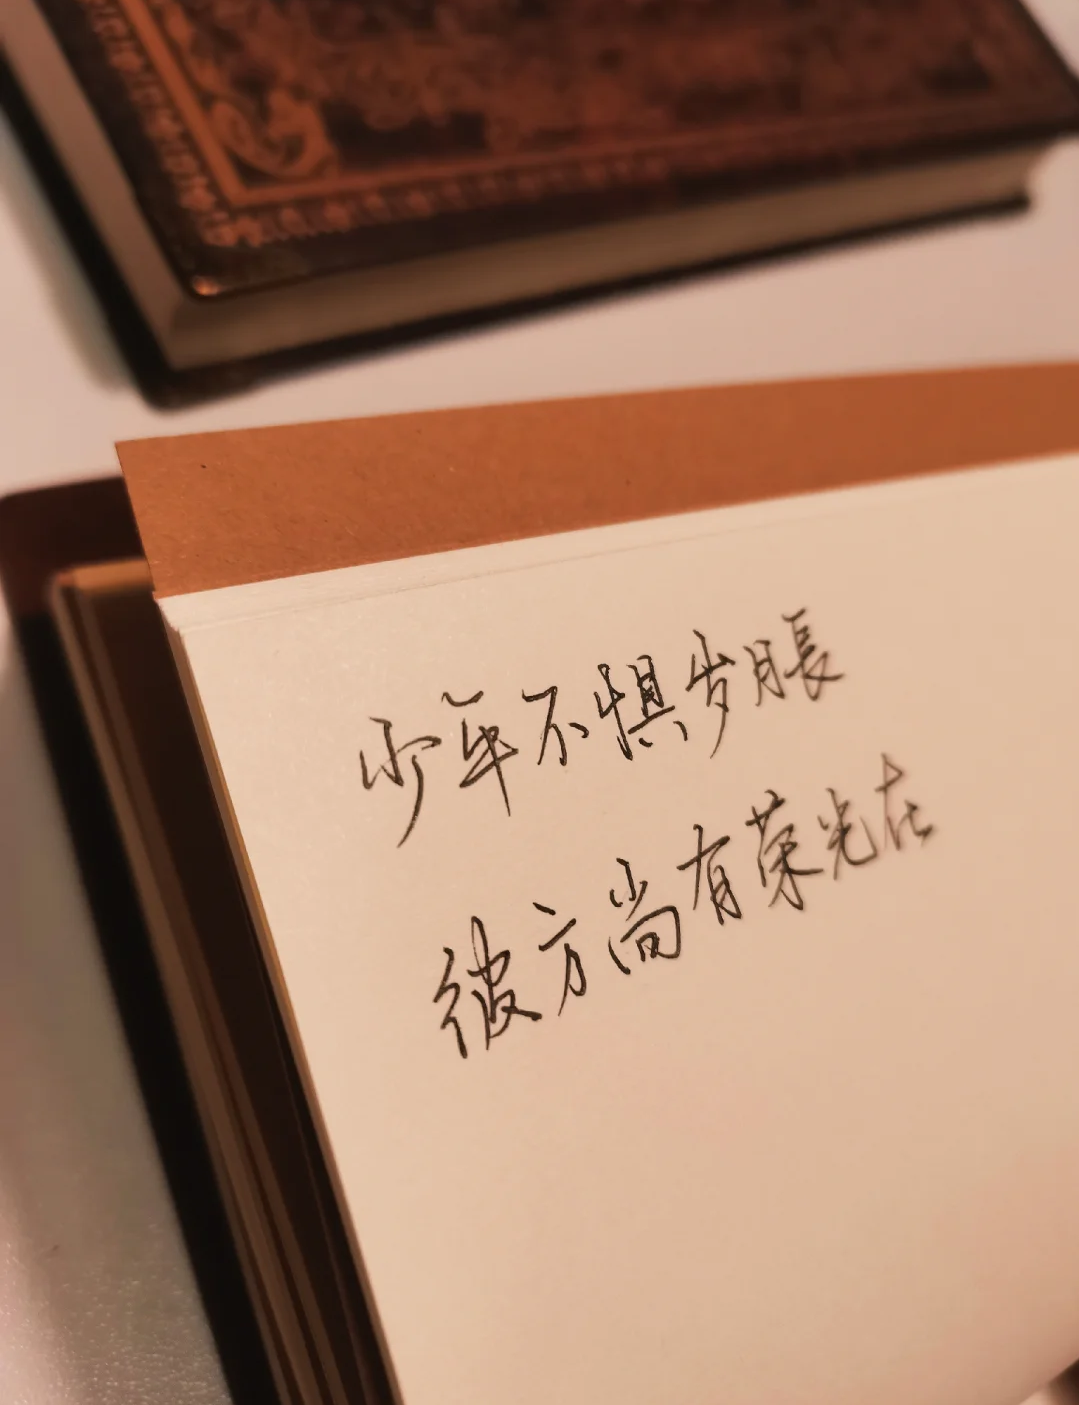 少年不惧岁月長
彼方尚有荣光在